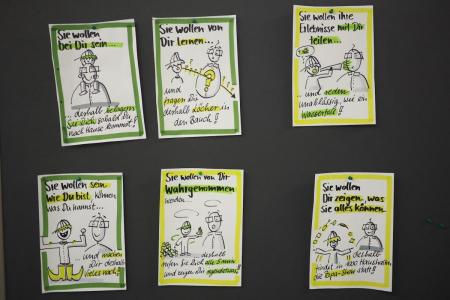 Sie wollen
bei Dir sein...
...deshalb belagern
Sie Dich, sobald Du
nach Hause kommst!
Sie wollen von
Dir Lernen...
und
fragen Dir
deshalb Löcher in
den Bauch!!
Sie wollen ihre
Erlebnisse mit Dir
teilen...
...und reden
unablässig, wie ein
Wasserfall!
Sie wollen sein
wie Du bist, können
was Du kannst...
...und machen
Dir deshalb
vieles nach!
Sie wollen von Dir
Wahrgenommen
werden...
...deshalb
rufen sie Dich alle 5 min
und zeigen Dir irgendetwas!
Sie wollen
Dir zeigen, was
Sie alles können
deshalb
findet in
die Papa-Show statt!!